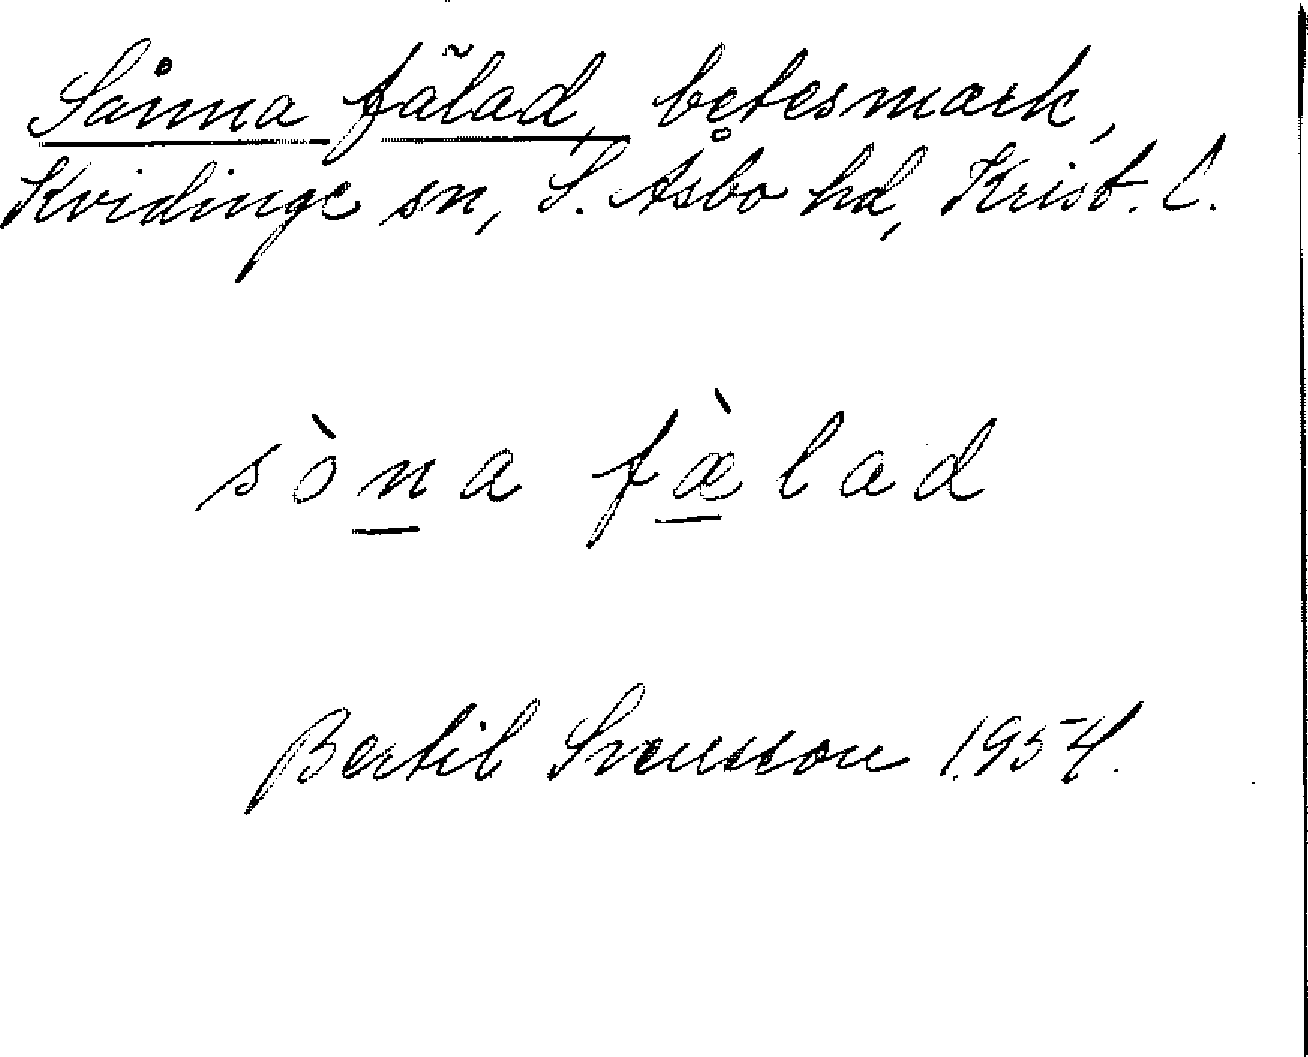 Sånna fälad, betesmark,
Kvidinge sn, S. Åsbo hd, Krist. l.
sòna fæ̀lad
Bertil Svensson 1954.